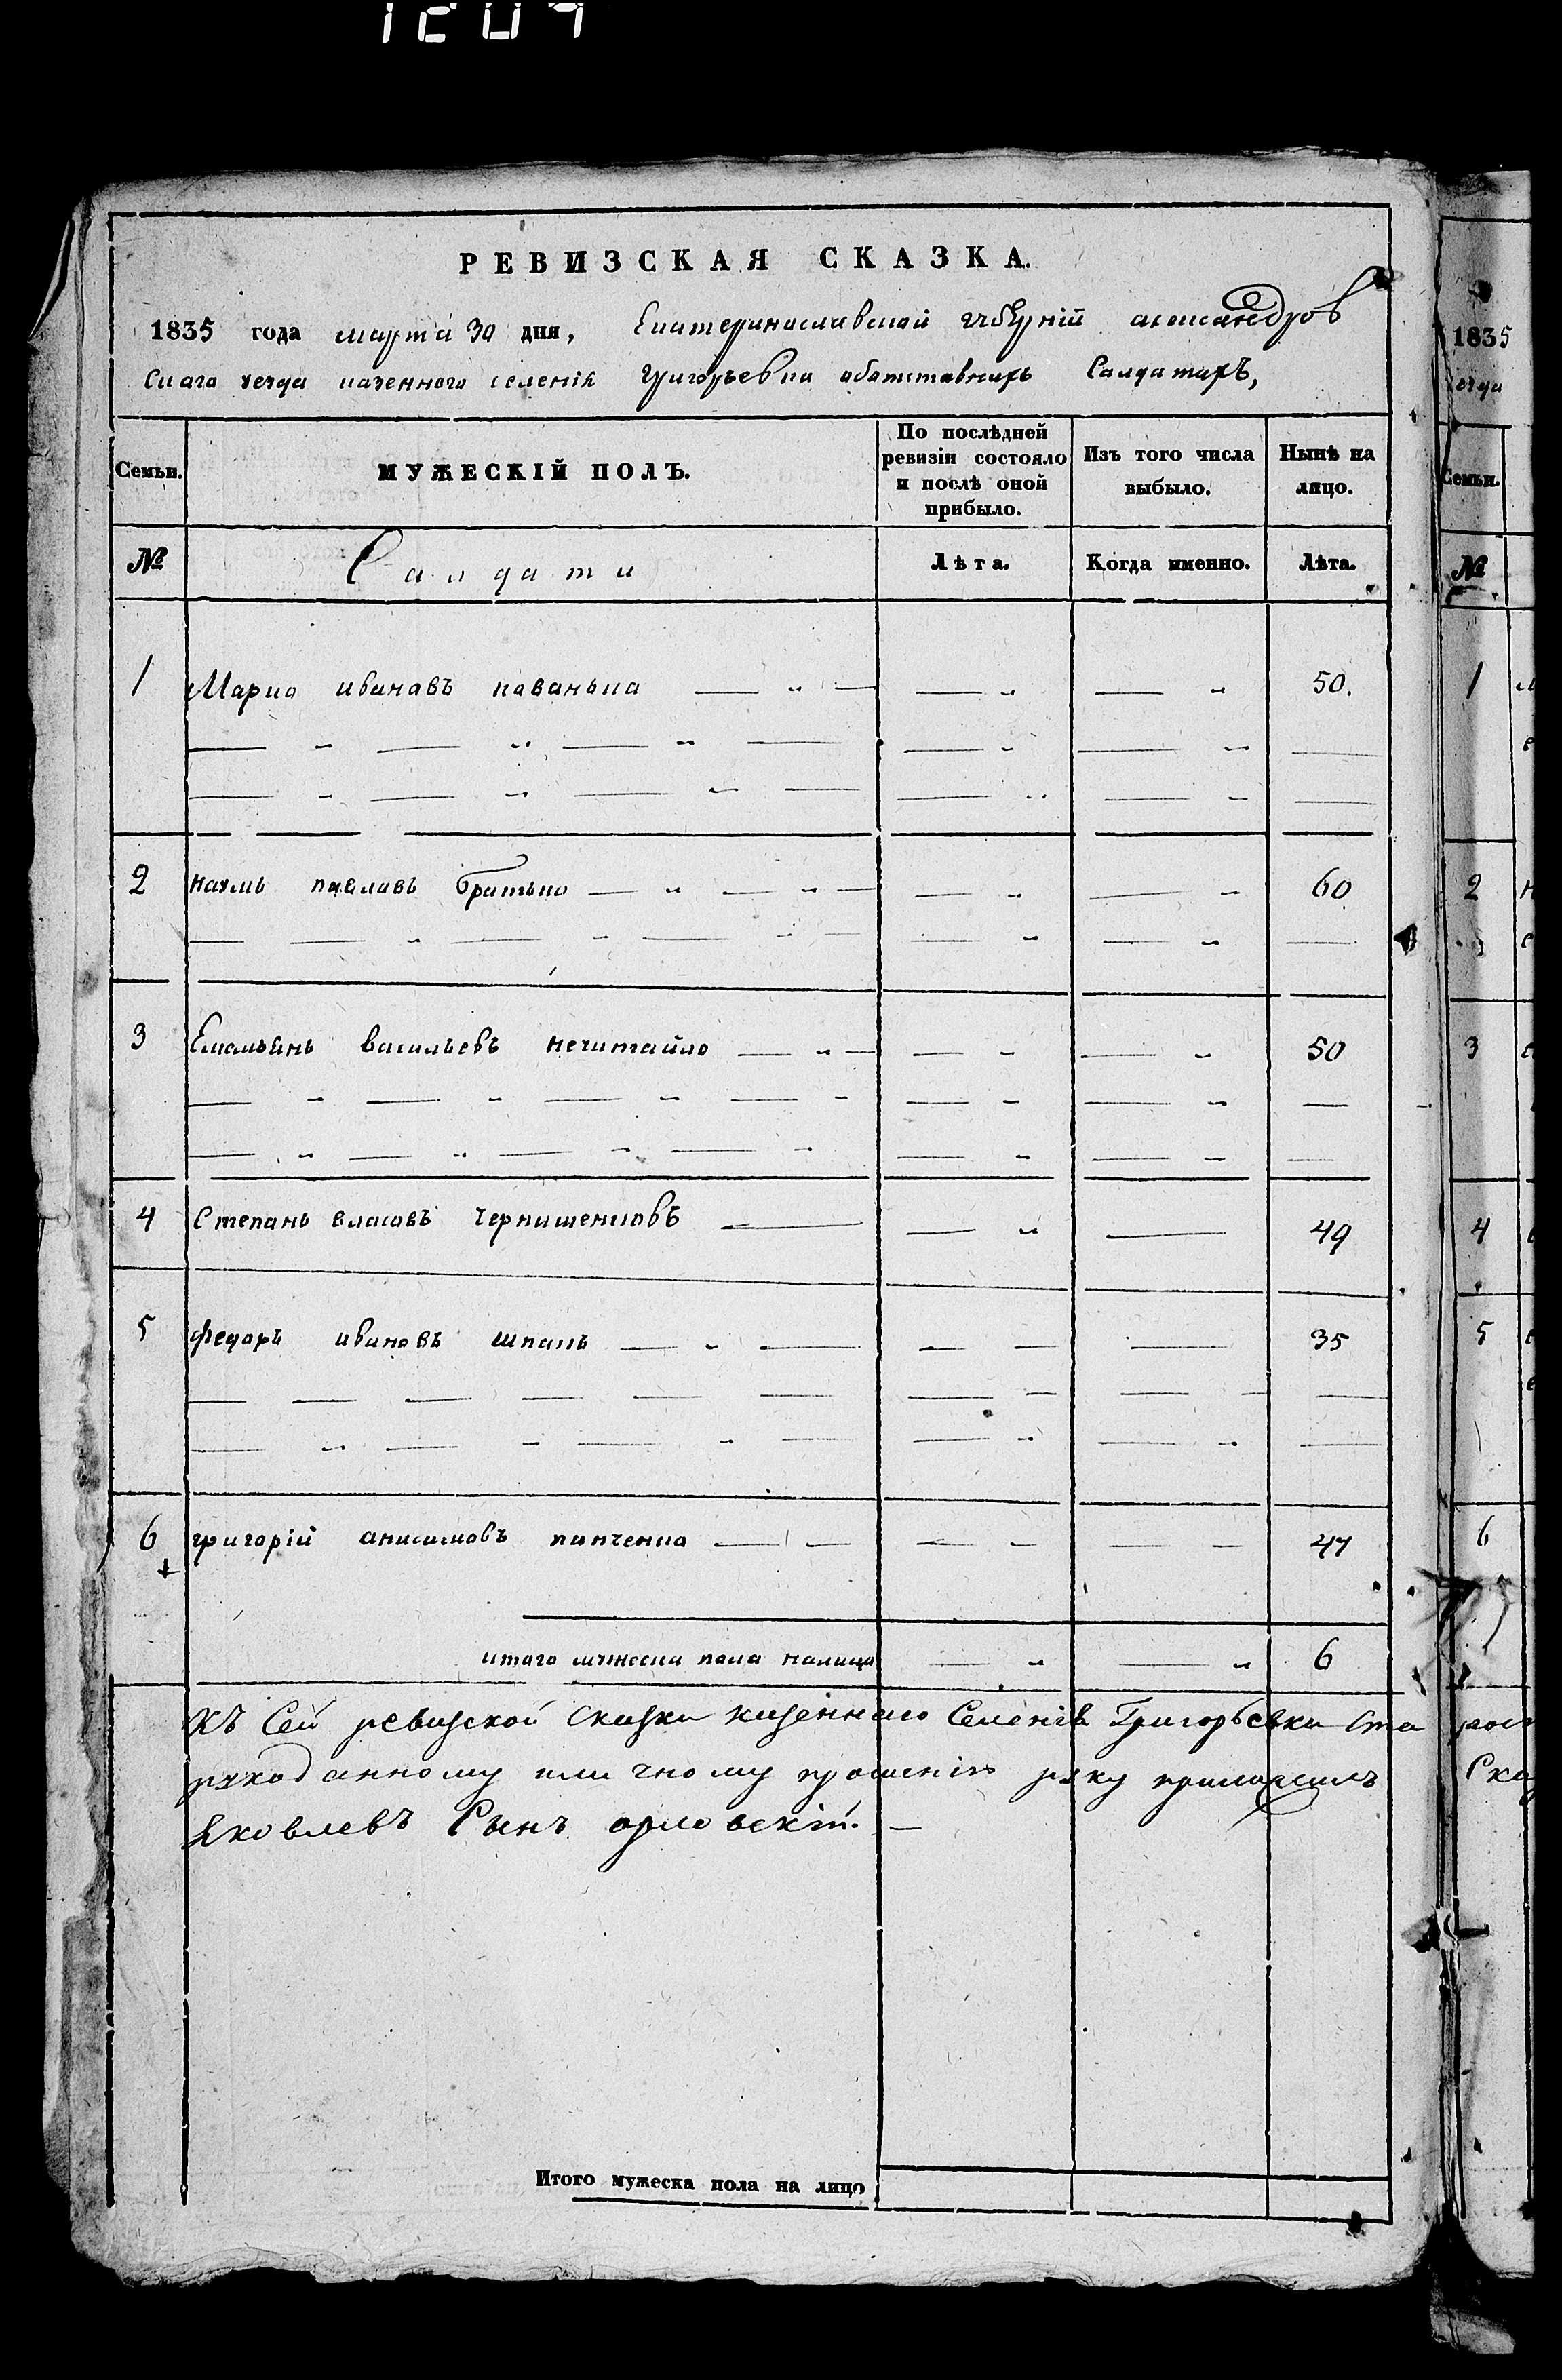 1207
РЕВИЗСКАЯ СКАЗКА.
1835 года марта 30 дня, Екатеринославской губернiй александров
скаго уезда казенного селенiя григорьевки оботставныхъ Салдатахъ,
Семьи.
МУЖЕСКІЙ ПОЛЪ.
По послѣдней
ревизіи состояло
и послѣ оной
прибыло.
Изъ того числа
выбыло.
Нынѣ на
лицо.
№
Салдати
Лѣта.
Когда именно.
Лѣта.
1 Марко ивановъ кованька 50.
2 наумъ павловъ братько 60
3 Емельянъ васильевъ нечитайло 50
4 Степанъ власовъ чернишенковъ 49
5 федоръ ивановъ шпакъ 35
6 григорiй анисимовъ панченко 47
итого мужеска пола налицо 6
Къ Сей ревизской сказки казеннаго Селенiя Григорьевки Ста
рукоданному иличному прошенiю руку приложилъ
Яковлевъ Сынъ орловскiй.
Итого мужеска пола на лицо
1835
уезда
Семьи.
№
1
2
3
4
5
6